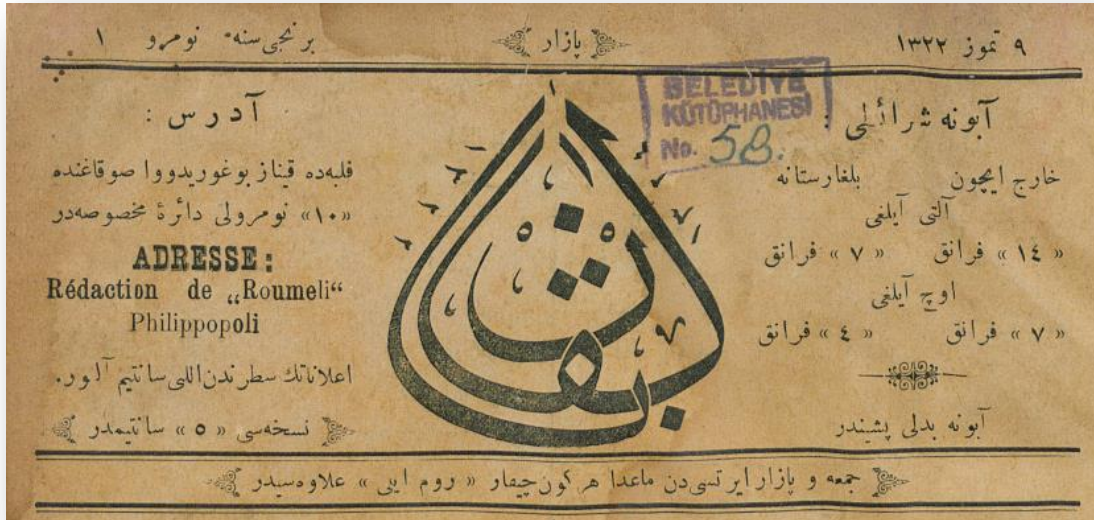 ٩ تموز ١٣٢٢
پازار
برنجی سنه نومرو ١
آبونه شرائطی :
خارج ایچون بلغارستانه
آلتی آیلغی
« ١٤ » فرانق « ٧ » فرانق
اوچ آیلغی
« ٧ » فرانق « ٤ » فرانق
آبونه بدلی پشیندر
BELEDİYE
KÜTÜPHANESİ
No. 58
آدرس :
فلبه‌ده قیناز بوغوریدووا صوقاغنده
«١٠» نومرولی دائرۀ مخصوصه‌در
ADRESSE:
Rédaction de „Roumeli“
Philippopoli
اعلاناتك سطرندن اللی سانتیم آلور.
نسخه‌سی « ٥ » سانتیمدر
جمعه و پازار ایرتسی‌دن ماعدا هر کون چیقار « روم ایلی » علاوه‌سیدر